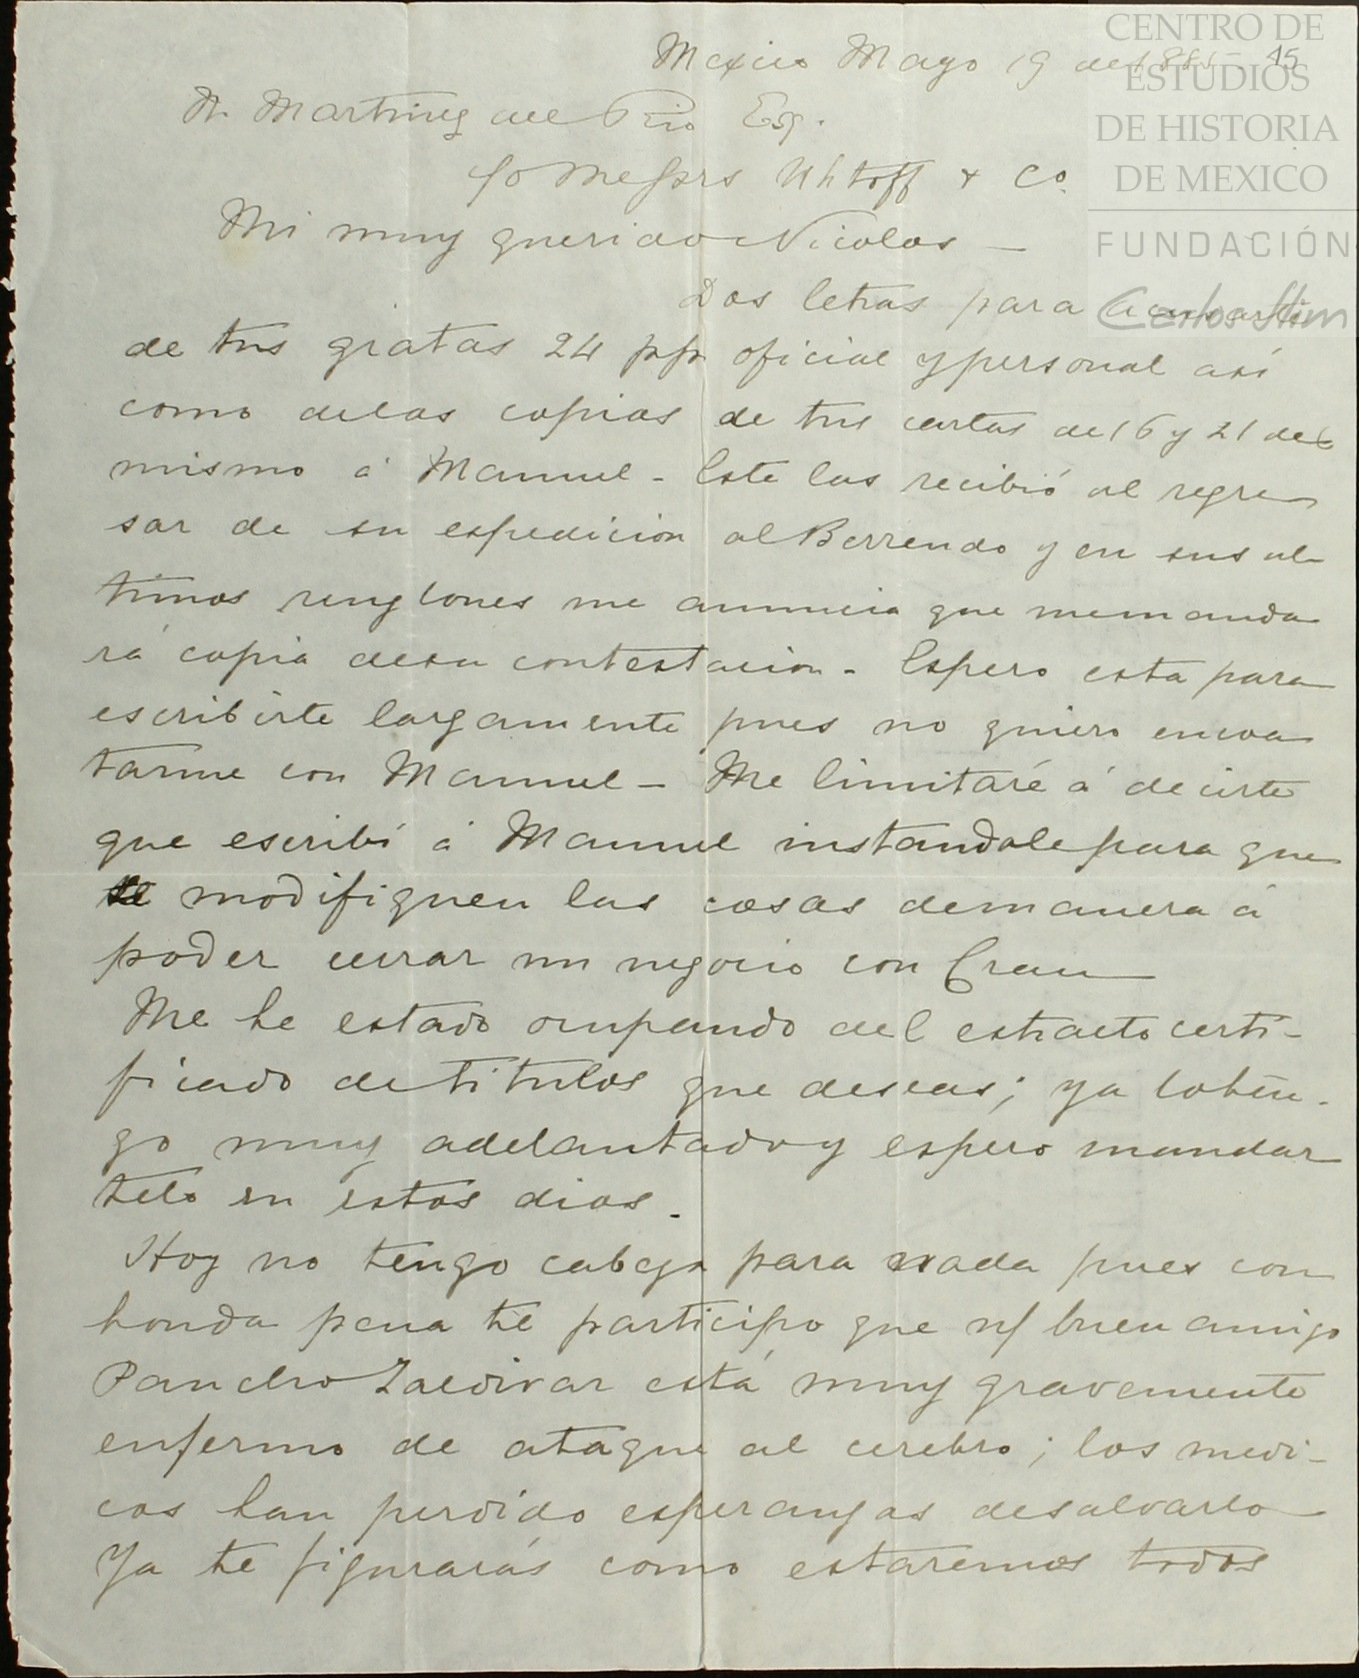 CENTRO DE
ESTUDIOS
DE HISTORIA
DE MEXICO
FUNDACIÓN
Carlos Slim
15
Mexico Mayo 19 de 1885
N. Martinez del Rio Esq.
c/o Messrs Uhtoff & Co.
Mi muy querido Nicolas —
Dos letras para acusarte
de tus gratas 24 ppo oficial y personal así
como de las copias de tus cartas de 16 y 21 del
mismo á Manuel - Este las recibió al regre
sar de su espedicion al Berrendo y en sus ul-
timos renglones me anuncia que me manda
rá copia de su contestacion - Espero esta para
escribirte largamente pues no quiero encoa
tarme con Manuel — Me limitaré á decirte
que escribí á Manuel instandole para que
se modifiquen las cosas de manera á
poder cerrar un negocio con
Me he estado ocupando del estracto certi-
ficado de titulos que deseas; ya lo ten-
go muy adelantado y espero mandar
telo en estos dias.
Hoy no tengo cabeza para nada pues con
honda pena te participo que n/ buen amigo
Pancho Zaldivar está muy gravemente
enfermo de ataque al cerebro; los medi-
cos han perdido esperanzas de salvarlo
Ya te figurarás como estaremos todos